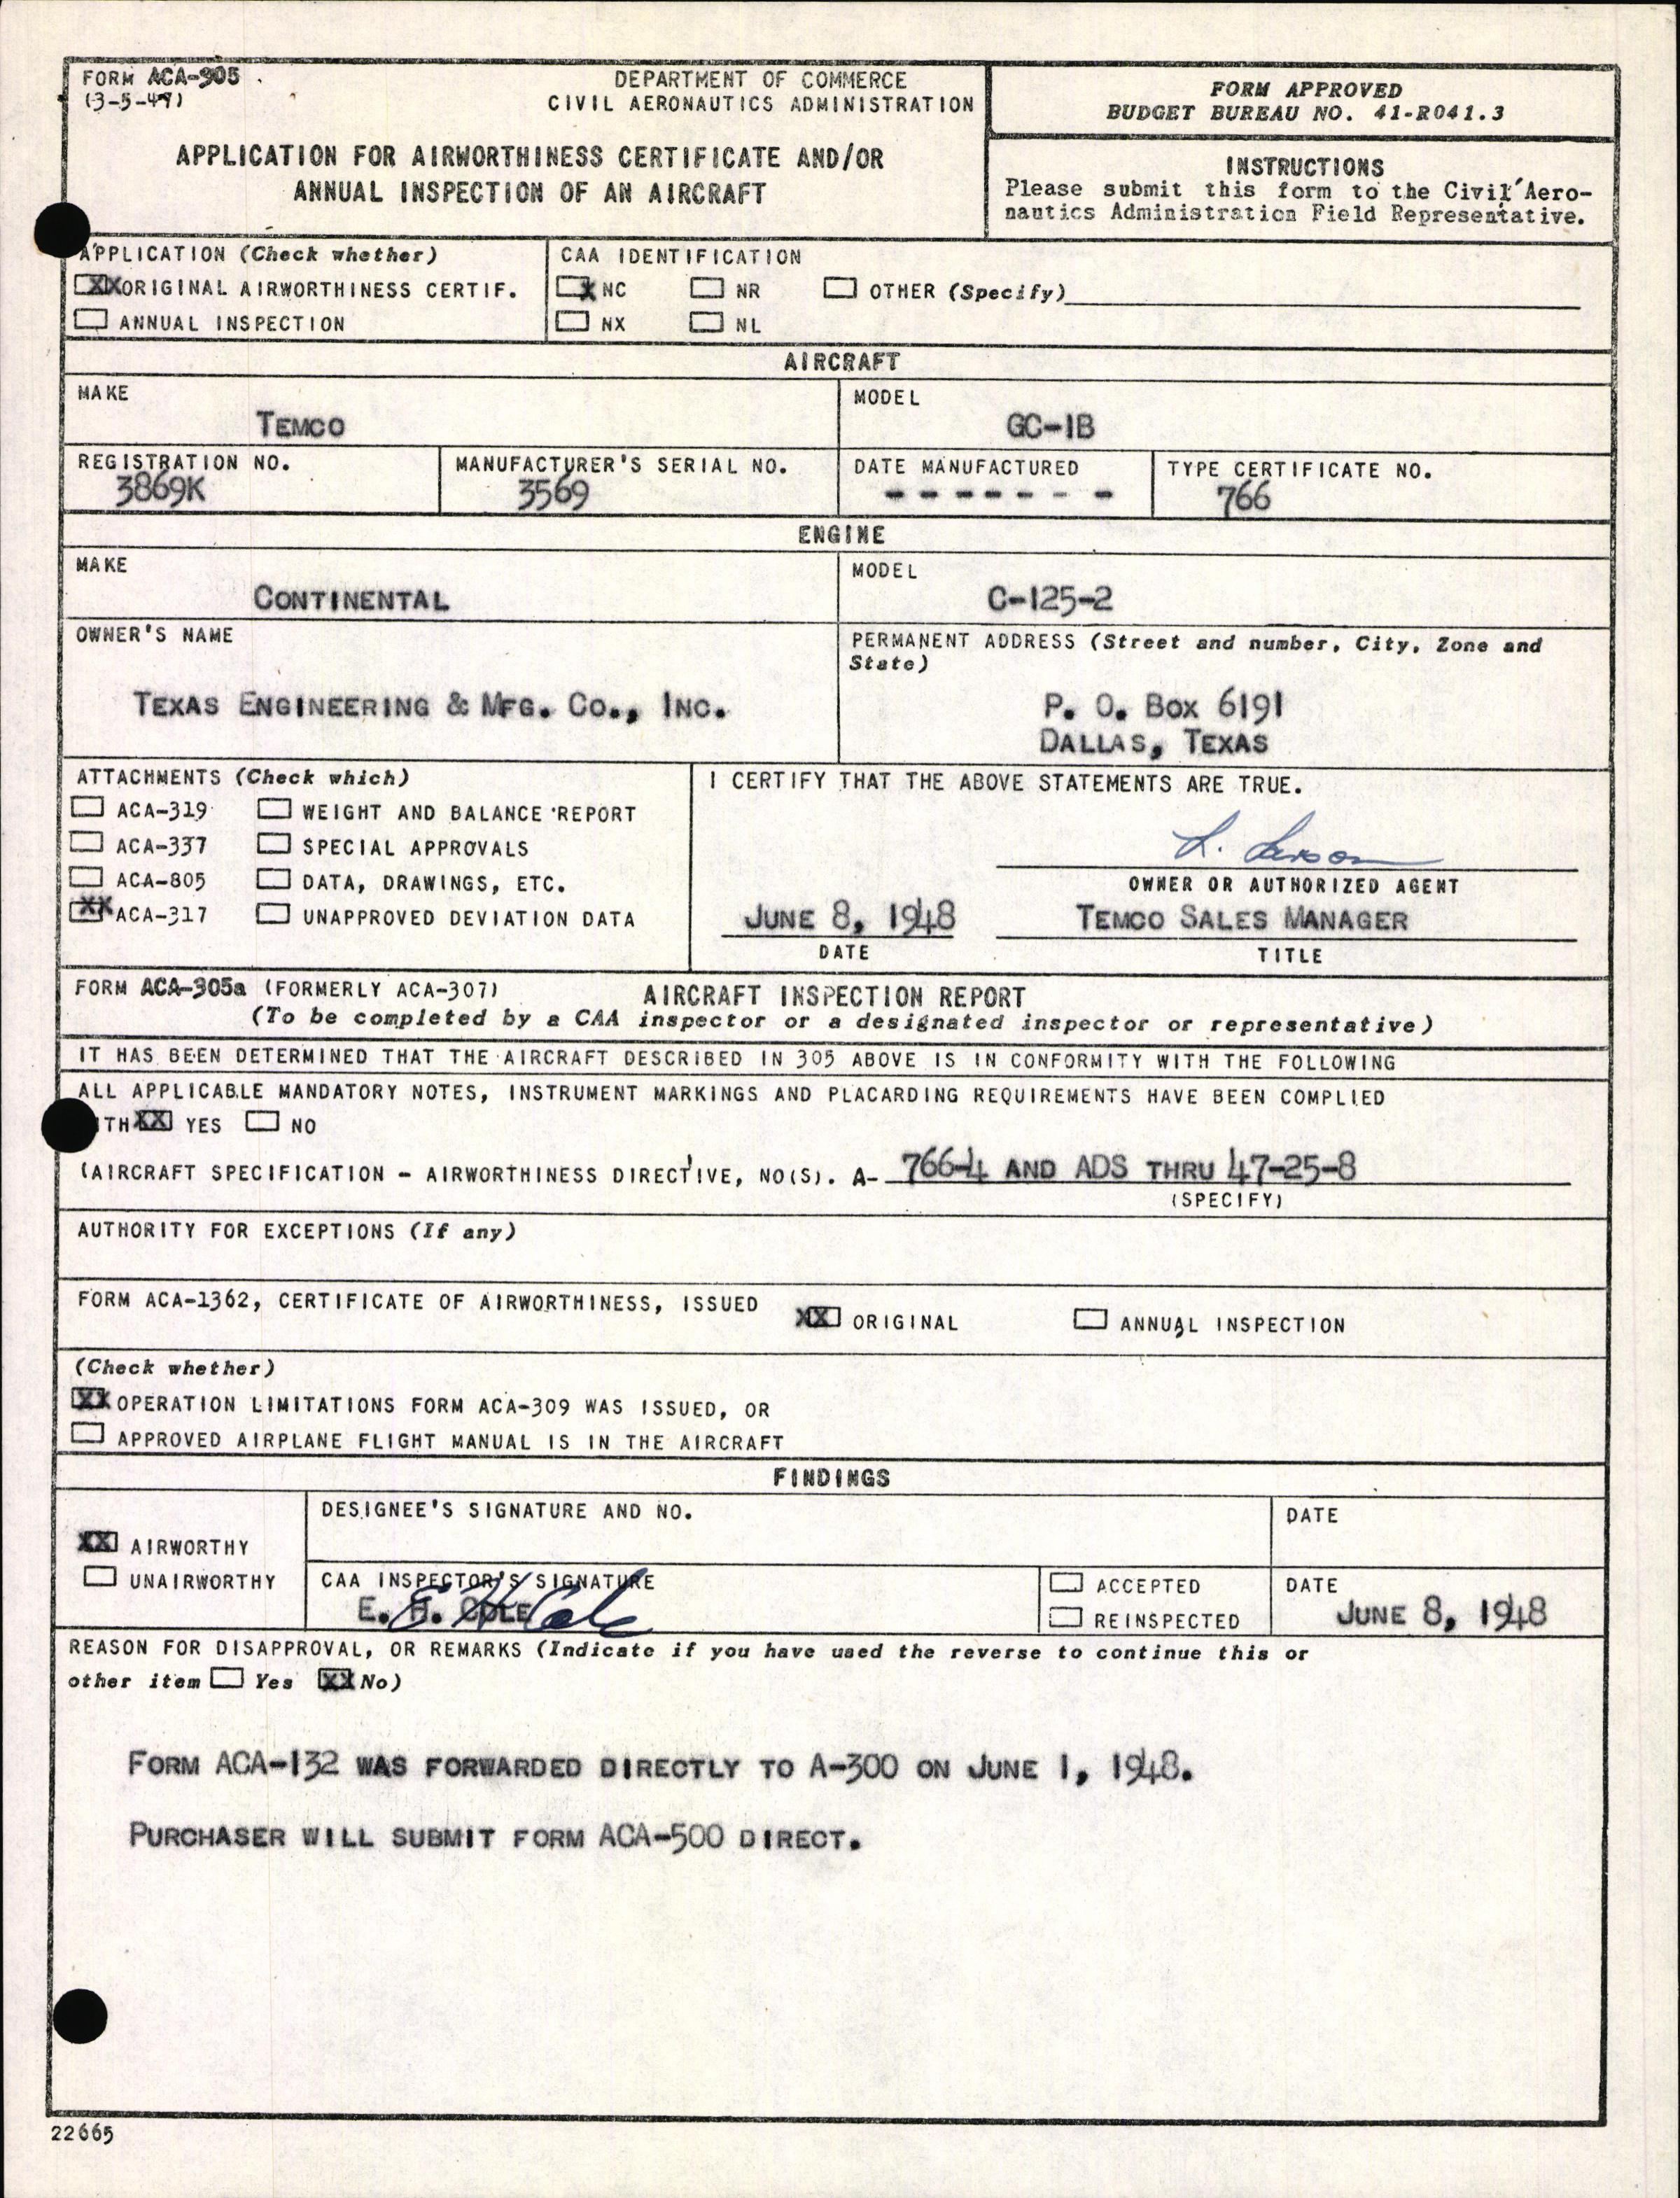 FORM ACA-305
(3-5-47)
DEPARTMENT OF COMMERCE
CIVIL AERONAUTICS ADMINISTRATION
APPLICATION FOR AIRWORTHINESS CERTIFICATE AND/OR
ANNUAL INSPECTION OF AN AIRCRAFT
FORM APPROVED
BUDGET BUREAU NO. 41-R041.3
INSTRUCTIONS
Please submit this form to the Civil Aero-
nautics Administration Field Representative.
APPLICATION (Check whether)
XX ORIGINAL AIRWORTHINESS CERTIF.
ANNUAL INSPECTION
CAA IDENTIFICATION
X NC NR OTHER (Specify)
NX NL
AIRCRAFT
MAKE
TEMCO
MODEL
GC-1B
REGISTRATION NO.
3869K
MANUFACTURER'S SERIAL NO.
3569
DATE MANUFACTURED
- - - - - - -
TYPE CERTIFICATE NO.
766
ENGINE
MAKE
CONTINENTAL
MODEL
C-125-2
OWNER'S NAME
TEXAS ENGINEERING & MFG. CO., INC.
PERMANENT ADDRESS (Street and number, City, Zone and
State)
P. O. BOX 6191
DALLAS, TEXAS
ATTACHMENTS (Check which)
ACA-319 WEIGHT AND BALANCE REPORT
ACA-337 SPECIAL APPROVALS
ACA-805 DATA, DRAWINGS, ETC.
XX ACA-317 UNAPPROVED DEVIATION DATA
I CERTIFY THAT THE ABOVE STATEMENTS ARE TRUE.
L.
OWNER OR AUTHORIZED AGENT
JUNE 8, 1948 TEMCO SALES MANAGER
DATE TITLE
FORM ACA-305a (FORMERLY ACA-307) AIRCRAFT INSPECTION REPORT
(To be completed by a CAA inspector or a designated inspector or representative)
IT HAS BEEN DETERMINED THAT THE AIRCRAFT DESCRIBED IN 305 ABOVE IS IN CONFORMITY WITH THE FOLLOWING
ALL APPLICABLE MANDATORY NOTES, INSTRUMENT MARKINGS AND PLACARDING REQUIREMENTS HAVE BEEN COMPLIED
ITH XX YES NO
(AIRCRAFT SPECIFICATION - AIRWORTHINESS DIRECTIVE, NO(S). A- 766-4 AND ADS THRU 47-25-8
(SPECIFY)
AUTHORITY FOR EXCEPTIONS (If any)
FORM ACA-1362, CERTIFICATE OF AIRWORTHINESS, ISSUED XX ORIGINAL ANNUAL INSPECTION
(Check whether)
XX OPERATION LIMITATIONS FORM ACA-309 WAS ISSUED, OR
APPROVED AIRPLANE FLIGHT MANUAL IS IN THE AIRCRAFT
FINDINGS
XX AIRWORTHY
UNAIRWORTHY
DESIGNEE'S SIGNATURE AND NO.
DATE
CAA INSPECTOR'S SIGNATURE
E. H. COLE
E H Cole
ACCEPTED
REINSPECTED
DATE
JUNE 8, 1948
REASON FOR DISAPPROVAL, OR REMARKS (Indicate if you have used the reverse to continue this or
other item Yes XX No)
FORM ACA-132 WAS FORWARDED DIRECTLY TO A-300 ON JUNE 1, 1948.
PURCHASER WILL SUBMIT FORM ACA-500 DIRECT.
22665